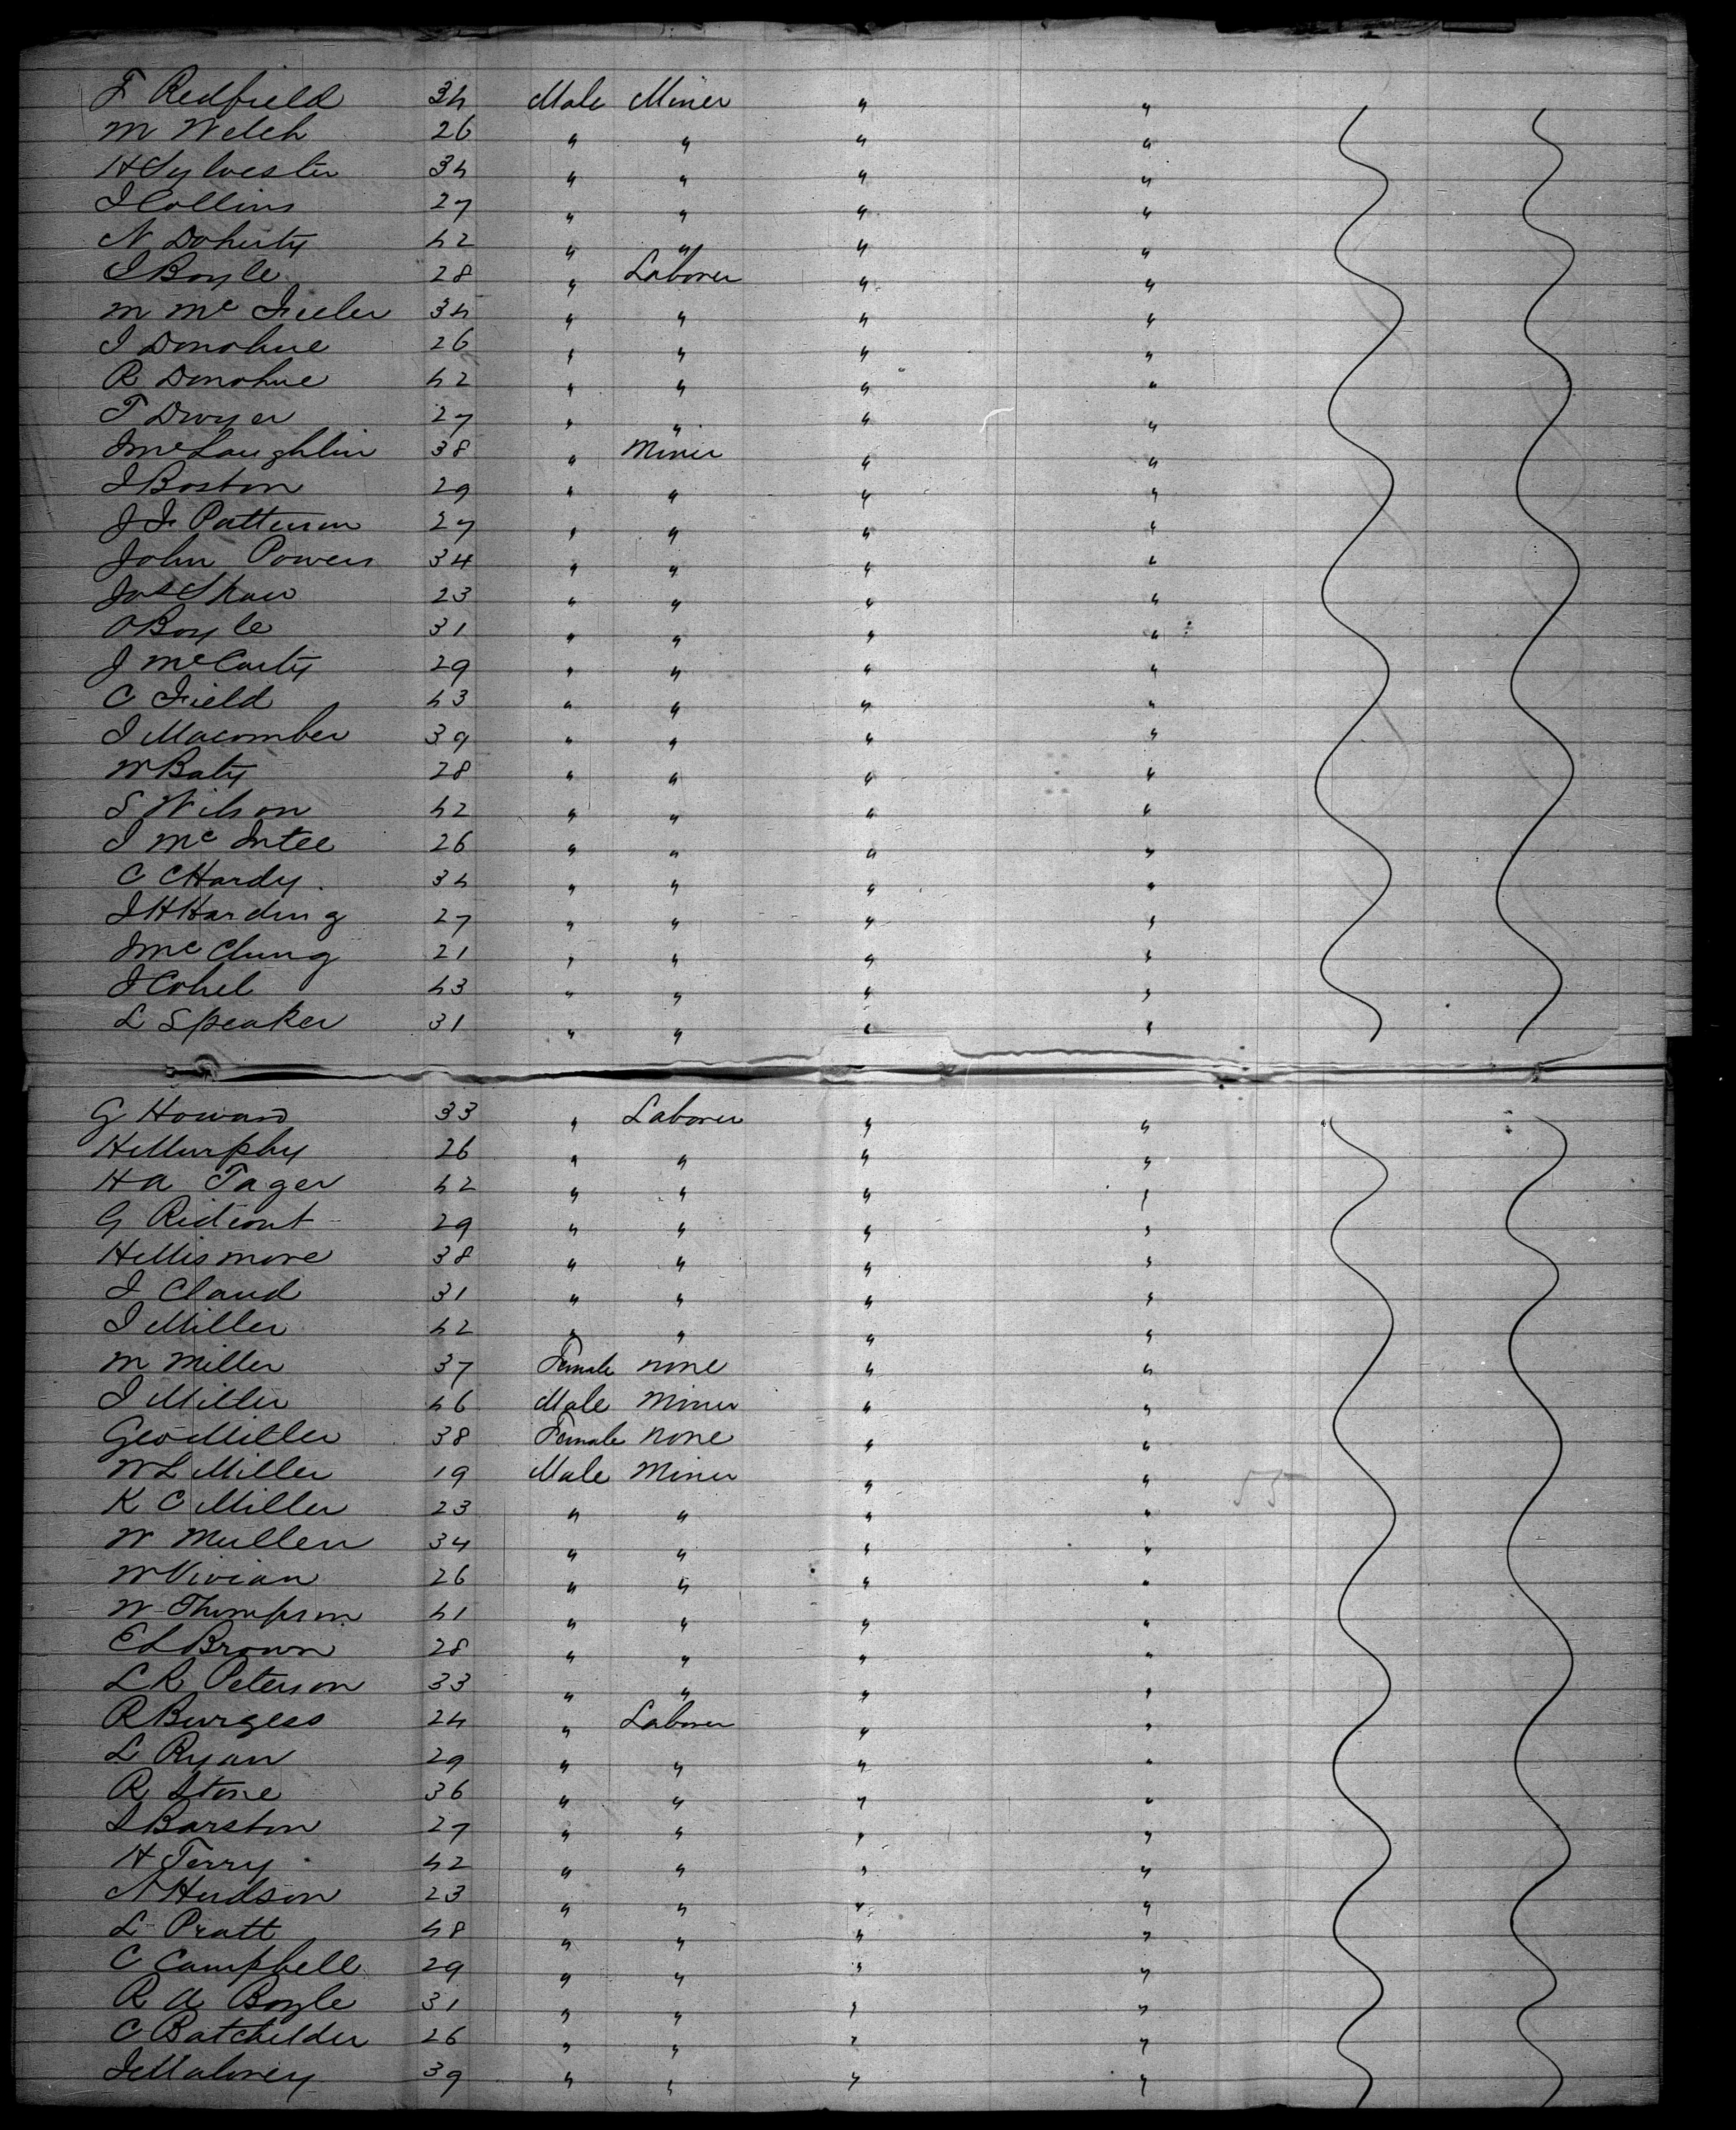 F Redfield 34 Male Miner " "
M Welch 26 " " " "
H Sylvester 34 " " " "
J Collins 27 " " " "
N Doherty 42 " " " "
J Boyle 28 " Laborer " "
M Mc Feeler 34 " " " "
J Donohue 26 " " " "
R Donohue 42 " " " "
T Dwyer 27 " " " "
J McLaughlin 38 " Miner " "
J Boston 29 " " " "
J F Patterson 27 " " " "
John Powers 34 " " " "
Jas Shaw 23 " " " "
O Boyle 31 " " " "
J McCarty 29 " " " "
C Field 43 " " " "
J Macomber 39 " " " "
W Baty 28 " " " "
S Wilson 42 " " " "
J Mc Intee 26 " " " "
C C Hardy 34 " " " "
J H Harding 27 " " " "
J McClung 21 " " " "
J Cohel 43 " " " "
L Speaker 31 " " " "
G Howard 33 " Laborer " "
H Murphy 26 " " " "
H A Tager 42 " " " "
G Rideout 29 " " " "
H Mismore 38 " " " "
J Claud 31 " " " "
J Miller 42 " " " "
M Miller 37 Female none " "
J Miller 46 Male Miner " "
Geo Miller 38 Female none " "
W L Miller 19 Male Miner " " 55
K C Miller 23 " " " "
W Mullen 34 " " " "
W Vivian 26 " " " "
W Thompson 41 " " " "
E L Brown 28 " " " "
L R Peterson 33 " " " "
R Burgess 24 " Laborer " "
L Ryan 29 " " " "
R Stone 36 " " " "
S Barston 27 " " " "
H Terry 42 " " " "
N Hudson 23 " " " "
L Pratt 48 " " " "
C Campbell 29 " " " "
R A Boyle 31 " " " "
C Batchelder 26 " " " "
J Maloney 39 " " " "